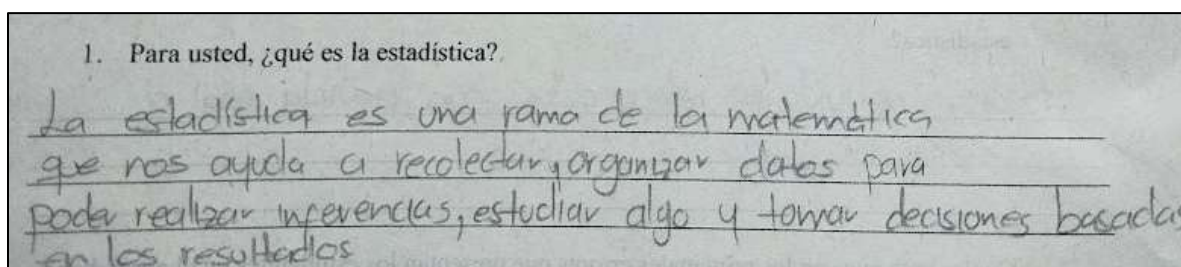 1. Para usted, ¿qué es la estadística?
La estadística es una rama de la matemática
que nos ayuda a recolectar, organizar datos para
poder realizar inferencias, estudiar algo y tomar decisiones basadas
en los resultados